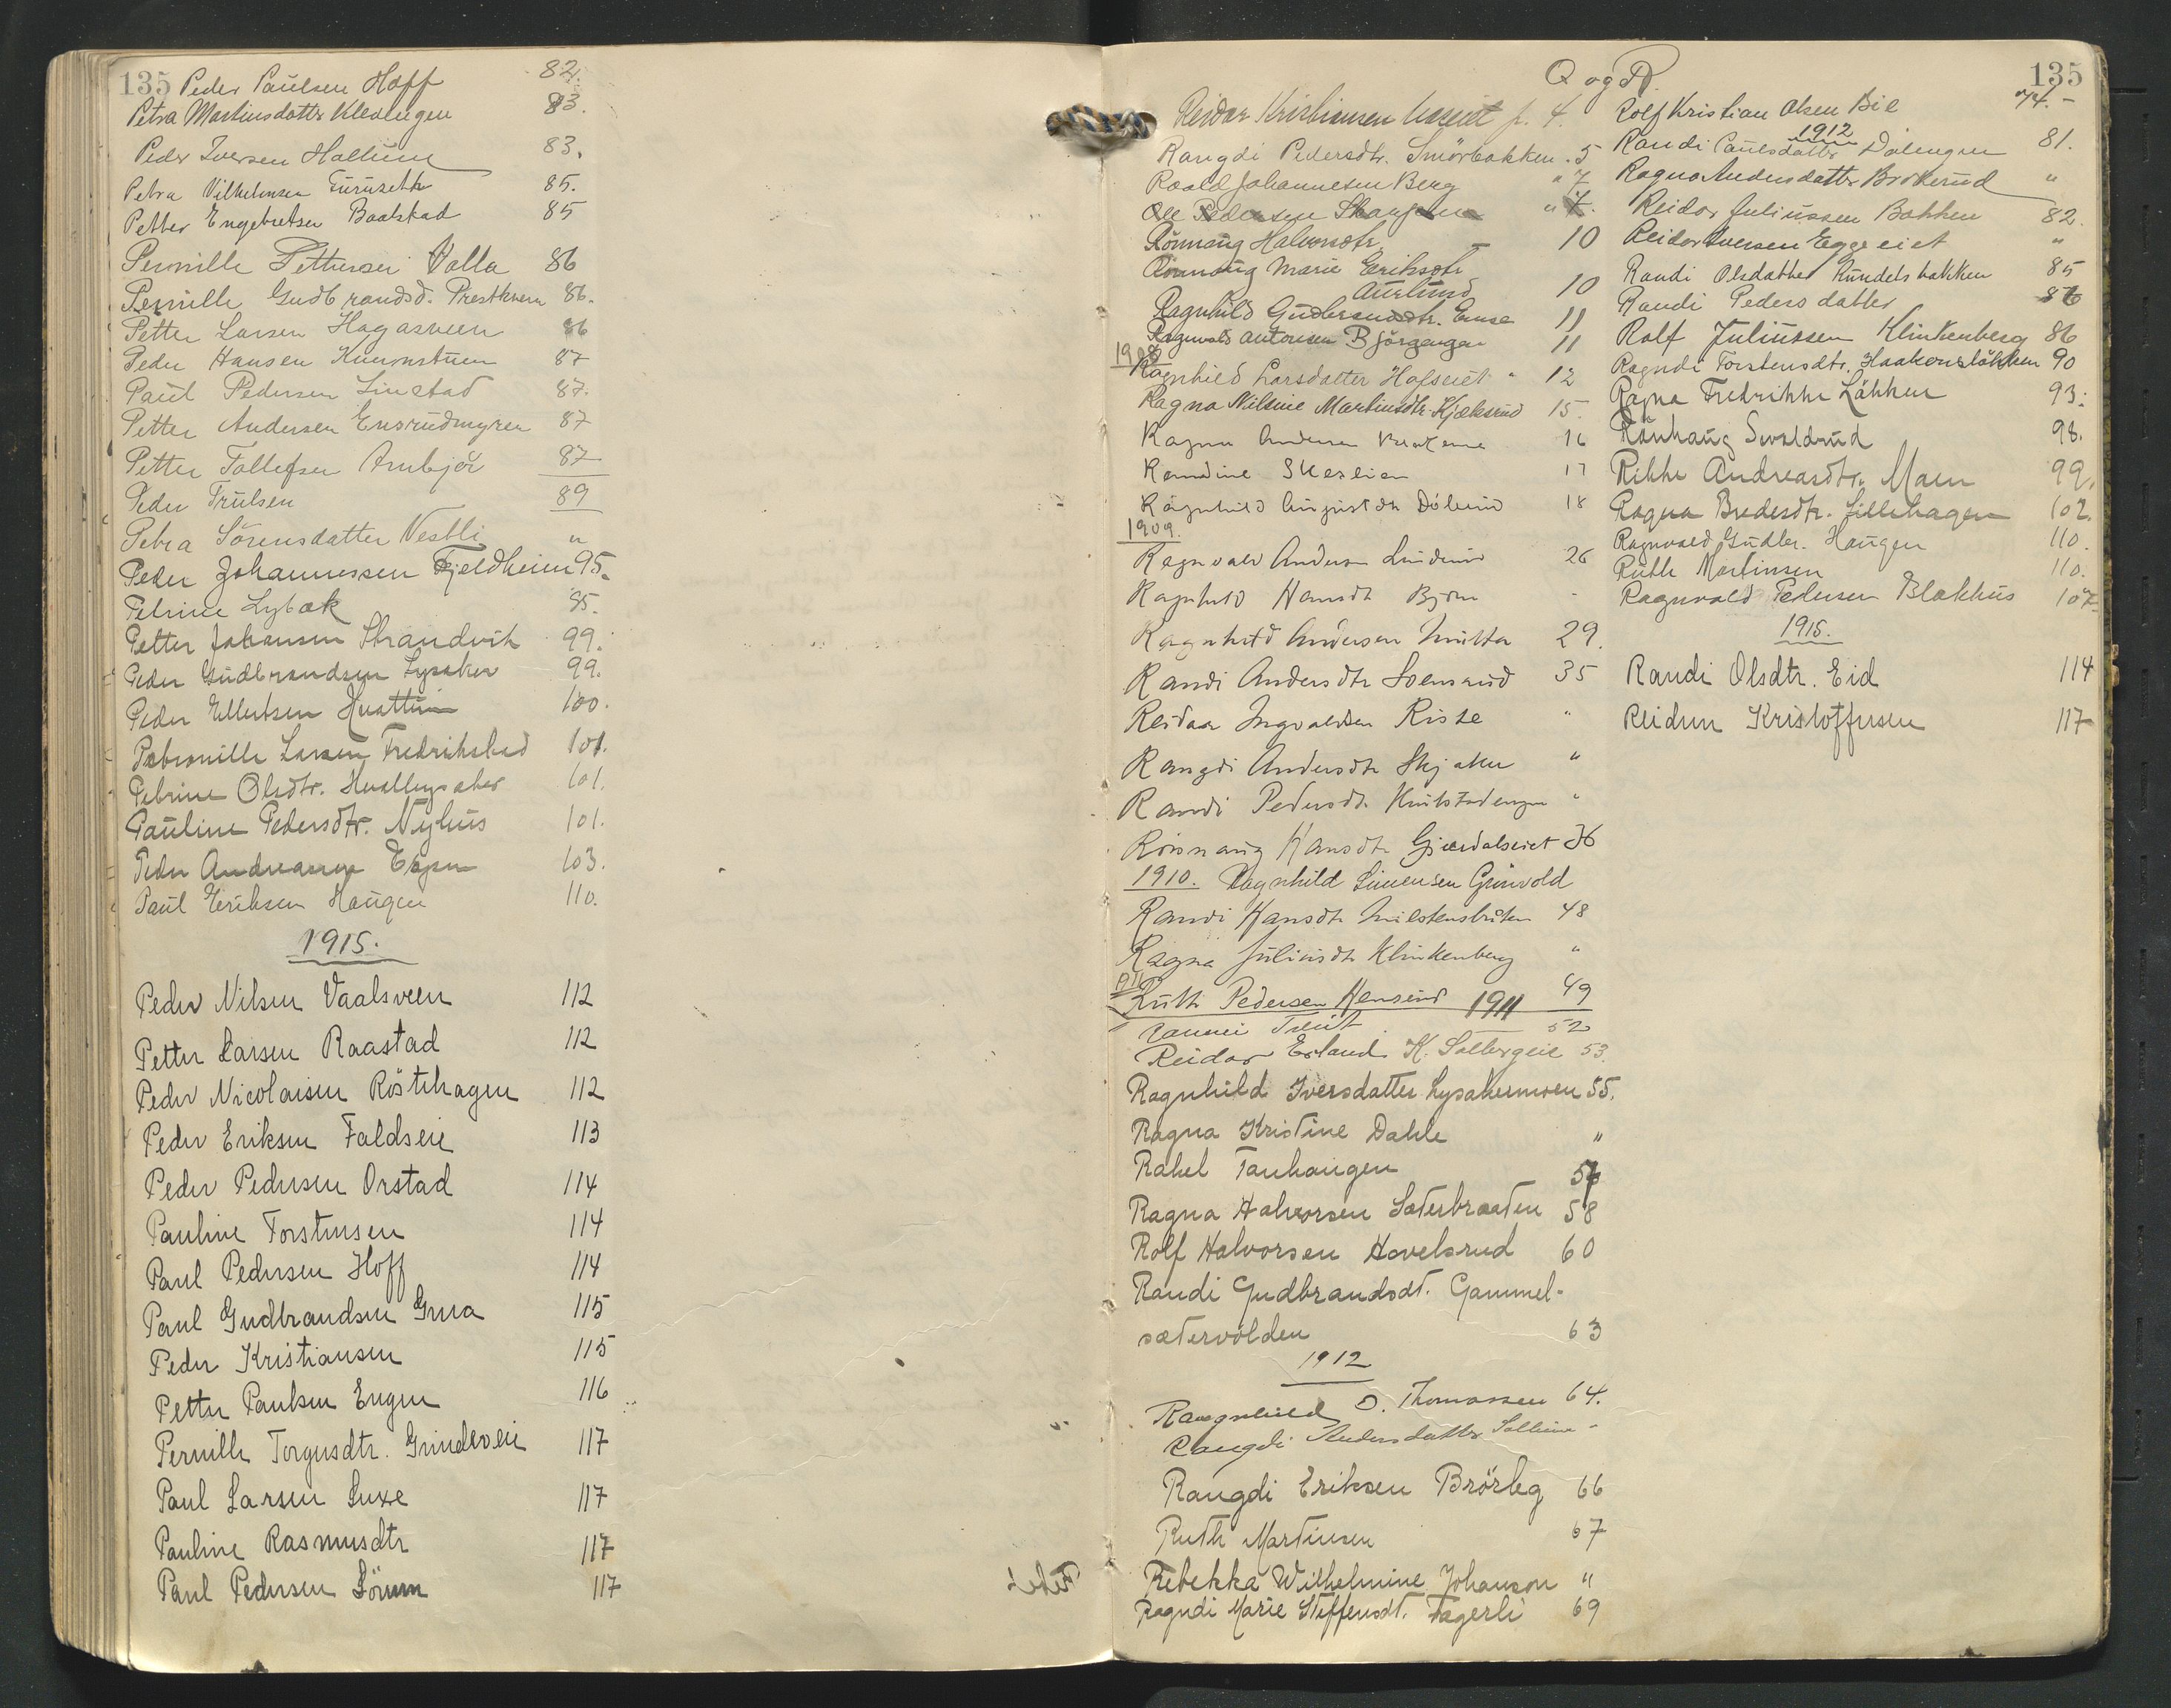 135 Peder Paulsen Hoff 82.
Petra Martinsdatter Klevengen 83.
Peder Iversen Hallum 83.
Petra Vilhelmsen Furuseth 85.
Petter Engebretsen Baalstad 85
Pernille Pettersen Valla 86
Pernille Gudbrandsd. Prestkvern 86.
Petter Larsen Hagasveen 86
Peder Hansen 87
Paul Pedersen Linstad 87.
Petter Andersen Ensrudmyren 87
Petter Tollefsen Arnbjör 87
Peder Trulsen 89
Petra Sörensdatter Vestli "
Peder Johannessen Fjeldheim 95.
Petrine Lybæk 95.
Petter Johansen Strandvik 99.
Peder Gudbrandsen Lysaker 99.
Peder Ellertsen Hvattum 100.
Petronille Larsen Fredrikstad 101.
Petrine Olsdtr. 101.
Pauline Pedersdtr. Nyhus 101.
Peder Andreassen 103.
Paul Eriksen Haugen 110.
1915.
Peder Nilsen Vaalsveen 112
Petter Larsen Raastad 112
Peder Nicolaisen Röstehagen 112
Peder Eriksen Faldseie 113
Peder Pedersen Orstad 114
Pauline Torstensen 114
Paul Pedersen Hoff 114
Paul Gudbrandsen Grua 115
Peder Kristiansen 115
Petter Paulsen Engen 116
Pernille Torgersdtr. Grindereie 117
Paul Larsen Luxe 117
Pauline Rasmusdtr 117
Paul Pedersen Sörum 117
Q og R.
135
Reidar Kristiansen p. 4.
Rangdi Pedersdtr. Smörbakken . 5
Roald Johannesen Berg " 7
Ole Pedersen " 7.
Rönnaug Halvorsdtr. 10
Rönnaug Marie Eriksdtr
Aurlund 10
Ragnhild Gudbrandsdtr. 11
Ragnvald Antonsen Björgengen 11
1908
Ragnhild Larsdatter Hofseiet " 12
Ragna Nilsine Martinsdtr. Kjæksrud 15.
Ragna Andersen 16
Randine 17
Ragnhild Augustdtr 18
1909.
Ragnvald Andersen Linderud 26
Ragnhild Hansdtr Björn -
Ragnhild Andersen 29.
Randi Andersdtr Svensrud 35
Reidar Ingvaldsen Riste "
Rangdi Andersdtr Skjaker "
Randi Pedersdtr "
Rönnaug Hansdtr Gjerdalseiet 36
1910. Ragnhild Simensen Grinvold
Randi Hansdtr 48
Ragna Juliusdtr Klinkenberg "
1911
Ruth Pedersen Hensrud 1911 49
52
Reidar Erland K. Solbergeie 53.
Ragnhild Iversdatter Lysakermoen 55.
Ragna Kristine Dahle "
Rakel Tanhaugen 57
Ragna Halvorsen Sæterbraaten 58
Rolf Halvorsen Hovelsrud 60
Randi Gudbrandsdt. Gammel-
sætervolden 63
1912
Rangnhild O. Thomassen 64.
Rangdi Andersdatter -
Rangdi Eriksen Brörby 66
Ruth Martinsen 67
Rebekka Wilhelmine Johanson "
Ragndi Marie Steffensdt. Fagerli 69
Rolf Kristian Olsen Bil 74. -
1912
Randi Paulsdatter Dælengen 81.
Ragna Andersdatter Brokerud "
Reidar Juliussen Bakken 82.
Reidar Iversen Eggeeiet "
Randi Olsdatter Rundelsbakken 85
Randi Pedersdatter 86
Rolf Juliussen Klinkenberg 86
Ragndi Torstensdtr. Haakonsløkken 90
Ragna Fredrikke Løkken 93.
Rönnaug Sivaldrud 98.
Rikke Andreasdtr. Moen 99.
Ragna Bredesdtr. Lillehagen 102.
Ragnvald Gudbr. Haugen 110.
Ruth Martinsen 110.
Ragnvald Pedersen Blekhus 107
1915.
Randi Olsdtr. Eid 114
Reidun Kristoffersen 117